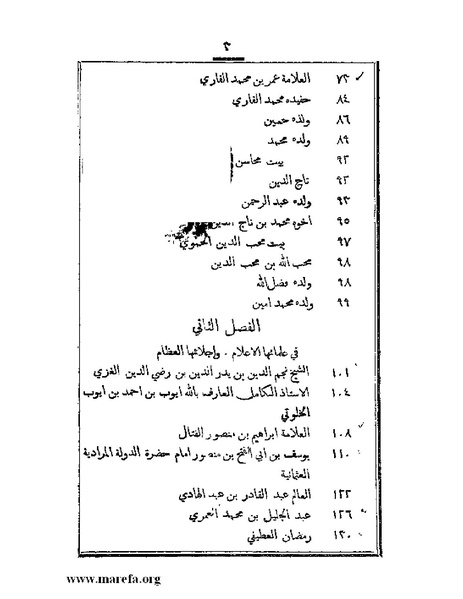 ٣
٧٢ العلامة عمر بن محمد القاري
٨٤ حفيده محمد القاري
٨٦ ولده حسين
٨٩ ولده محمد
٩٢ بيت محاسن
٩٢ تاج الدين
٩٣ ولده عبد الرحمن
٩٥ اخوه محمد بن تاج الدين
٩٧ بيت محب الدين الحموي
٩٨ محب الله بن محب الدين
٩٨ ولده فضل الله
٩٩ ولده محمد امين
الفصل الثاني
في علمائها الاعلام . واجلائها العظام
١٠١ الشيخ نجم الدين بن بدر الدين بن رضي الدين الغزي
١٠٤ الاستاذ الكامل العارف بالله ايوب بن احمد بن ايوب
الخلوتي
١٠٨ العلامة ابراهيم بن منصور الفتال
١١٠ يوسف بن ابي الفتح بن منصور امام حضرة الدولة المرادية
العثمانية
١٢٢ العالم عبد القادر بن عبد الهادي
١٢٦ عبد الجليل بن محمد العمري
١٣٠ رمضان العطيفي
www.marefa.org